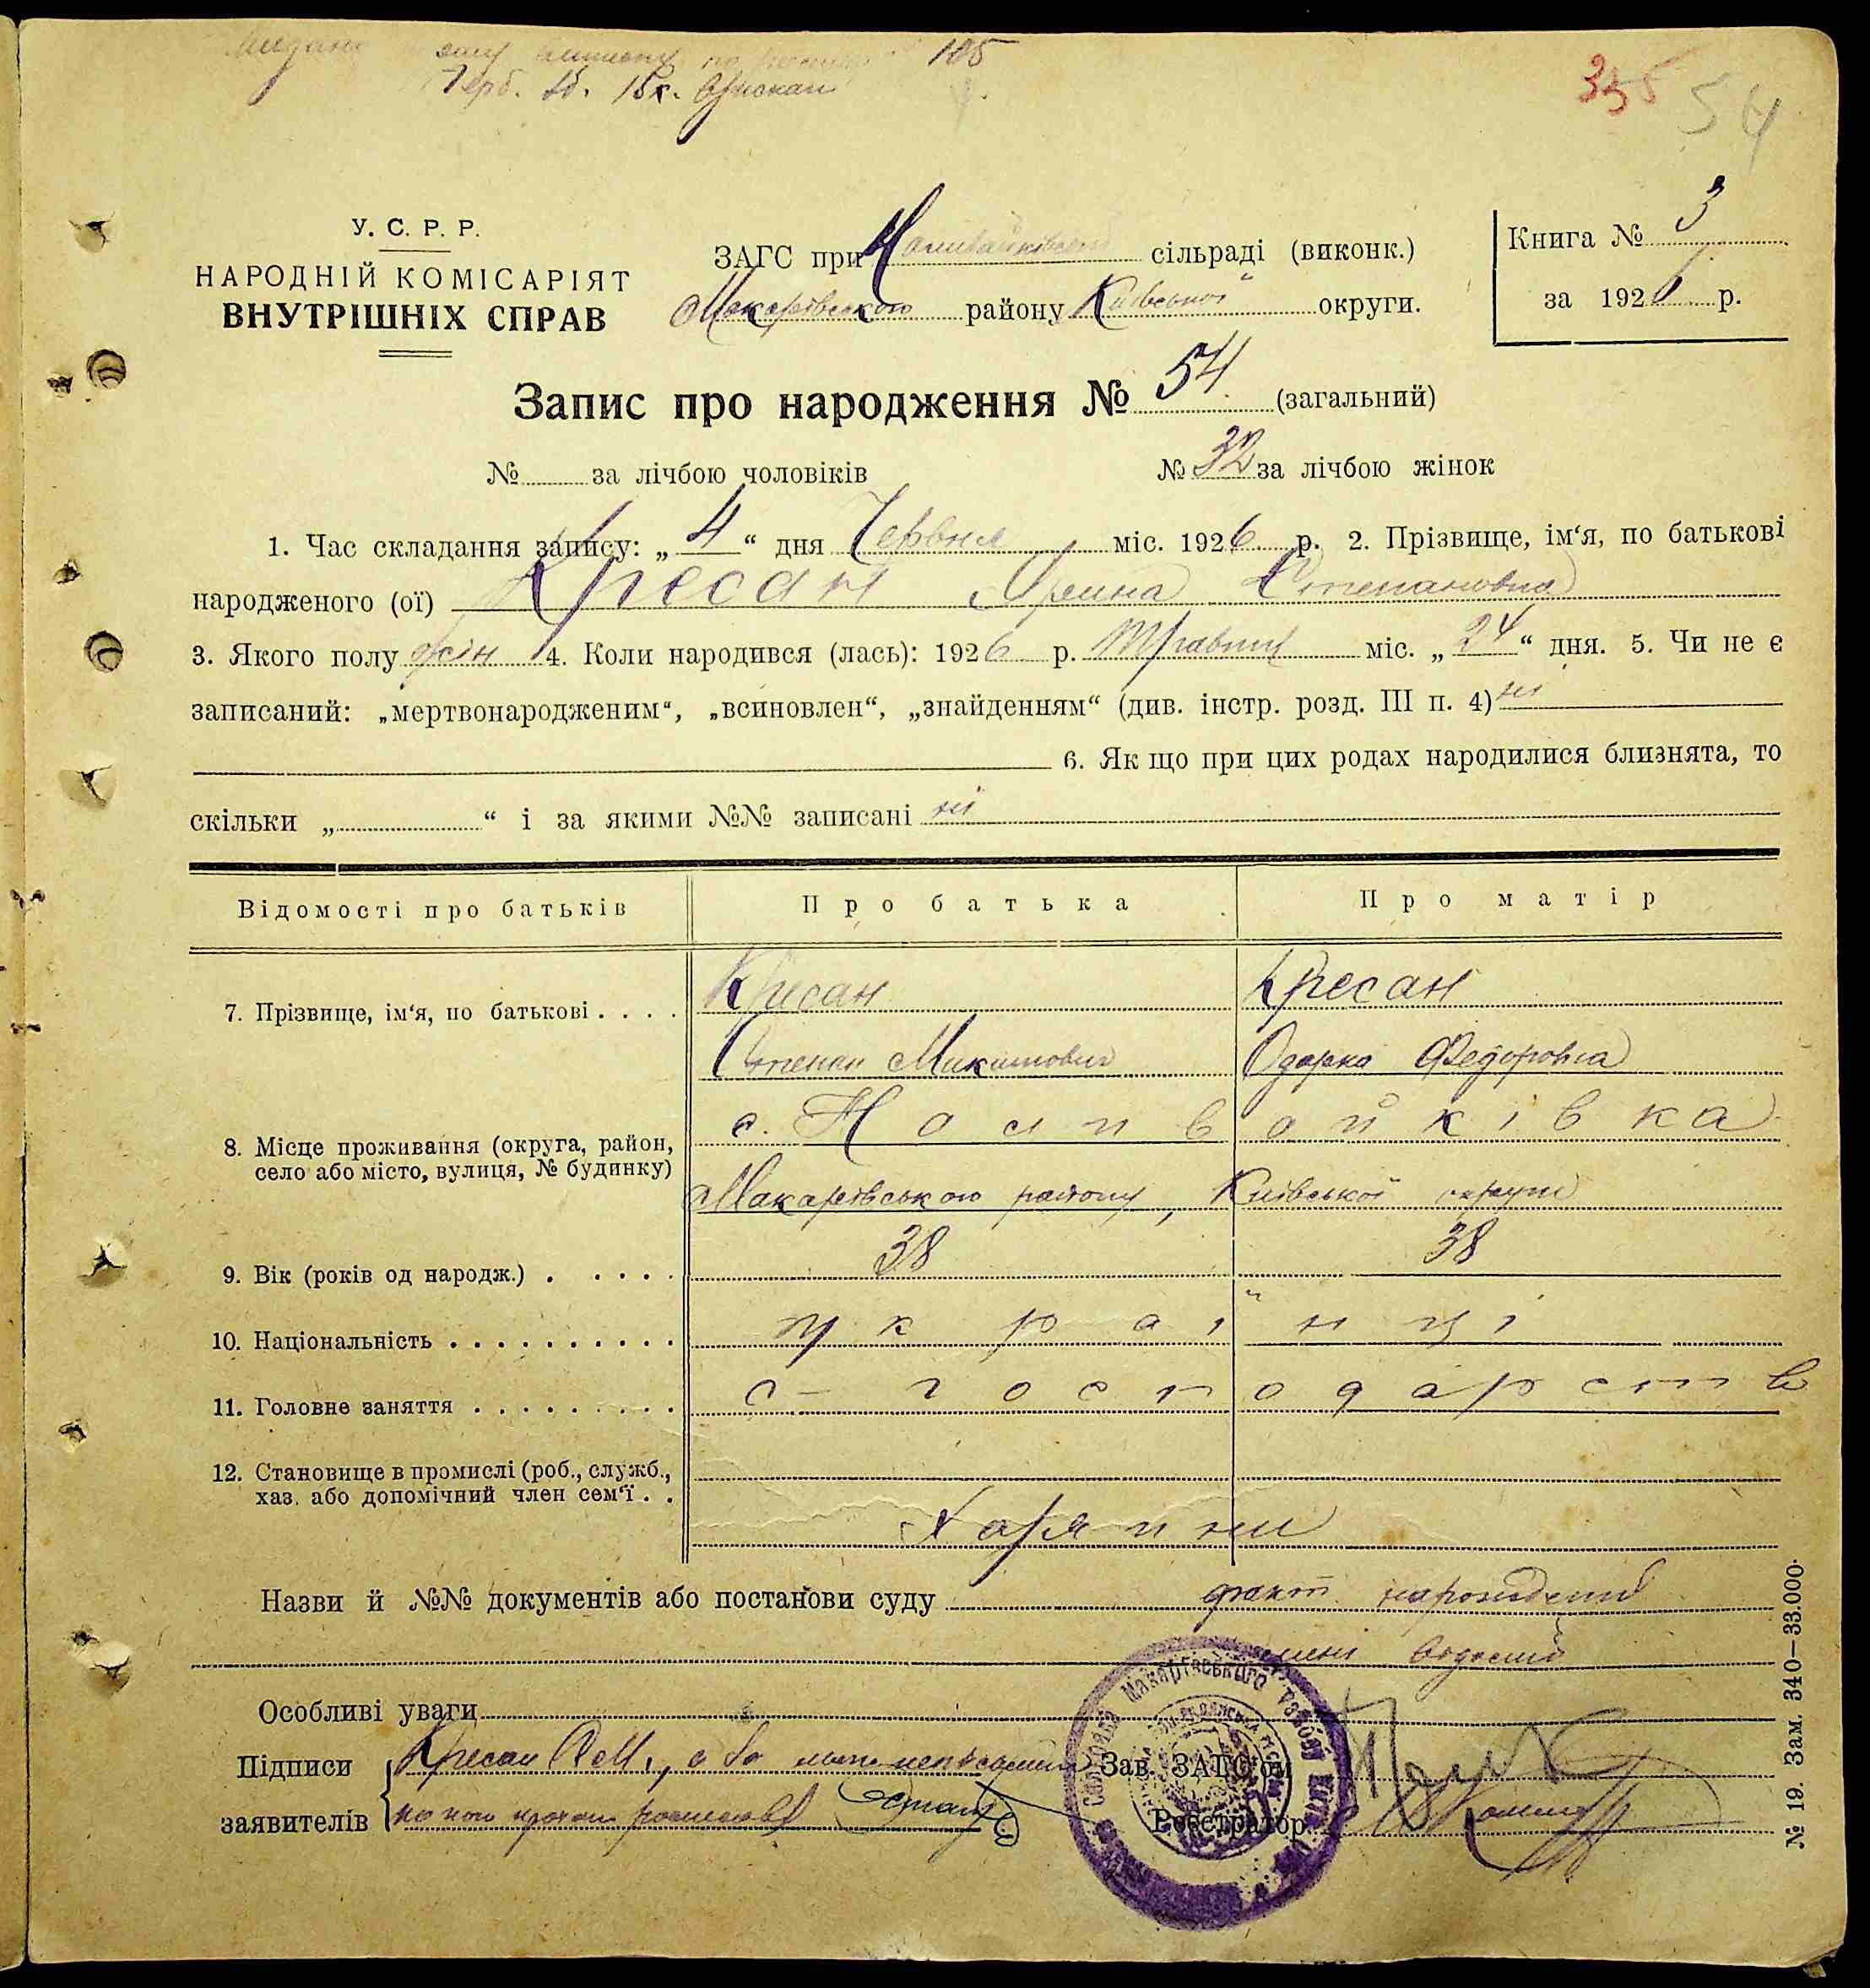 105
Герб. зб. 15к.
355 54
У. С. Р. Р.
НАРОДНІЙ КОМІСАРІЯТ
ВНУТРІШНІХ СПРАВ
ЗАГС при Наливайківській сільраді (виконк.)
Макарівського району Київської округи.
Книга № 3
за 1926 р.
Запис про народження № 54 (загальний)
№ за лічбою чоловіків № 32 за лічбою жінок
1. Час складання запису: „4“ дня Червня міс. 1926 р. 2. Прізвище, ім‘я, по батькові
народженого (ої) Кресан Арина Степановна
3. Якого полу жін 4. Коли народився (лась): 1926 р. Травня міс. „24“ дня. 5. Чи не є
записаний: „мертвонародженим“, „всиновлен“, „знайденням“ (див. інстр. розд. III п. 4) ні
6. Як що при цих родах народилися близнята, то
скільки „ “ і за якими №№ записані ні
Відомості про батьків Про батька Про матір
7. Прізвище, ім‘я, по батькові Кресан Кресан
Степан Микитович Одарка Федоровна
8. Місце проживання (округа, район,
село або місто, вулиця, № будинку)
с. Наливайківка
Макарівського району, Київської округи
9. Вік (років од народж.) 38 38
10. Національність українці
11. Головне заняття с-господарств
12. Становище в промислі (роб., служб.,
хаз. або допомічний член сем‘ї
Харяини
Назви й №№ документів або постанови суду факт народження
мені відомий
Особливі уваги
Підписи
заявителів
Кресан С. М., а за
Зав. ЗАГС‘ом
Реєстратор
№ 19. Зам. 340—33.000.
Макарівського району